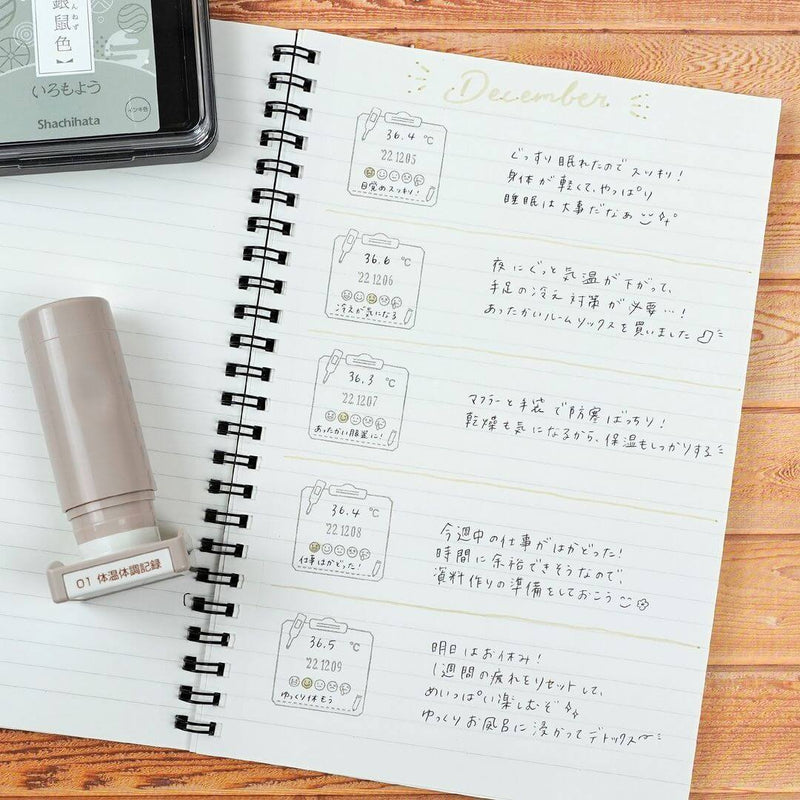 銀鼠色
んねず
いろもよう
インキ色
Shachihata
01 体温体調記録
December
36.4 ℃
'22 12 05
目覚めスッキリ!
ぐっすり眠れたのでスッキリ!
身体が軽くて、やっぱり
睡眠は大事だなぁ
36.6 ℃
'22 12 06
冷えが気になる
夜にぐっと気温が下がって、
手足の冷え対策が必要…!
あったかいルームソックスを買いました
36.3 ℃
'22 12 07
あったかい服装に!
マフラーと手袋で防寒ばっちり!
乾燥も気になるから、保湿もしっかりする
36.4 ℃
'22 12 08
仕事はかどった!
今週中の仕事がはかどった!
時間に余裕できそうなので、
資料作りの準備をしておこう
36.5 ℃
'22 12 09
ゆっくり休もう
明日はお休み!
1週間の疲れをリセットして、
めいっぱい楽しむぞ
ゆっくりお風呂に浸かってデトックス